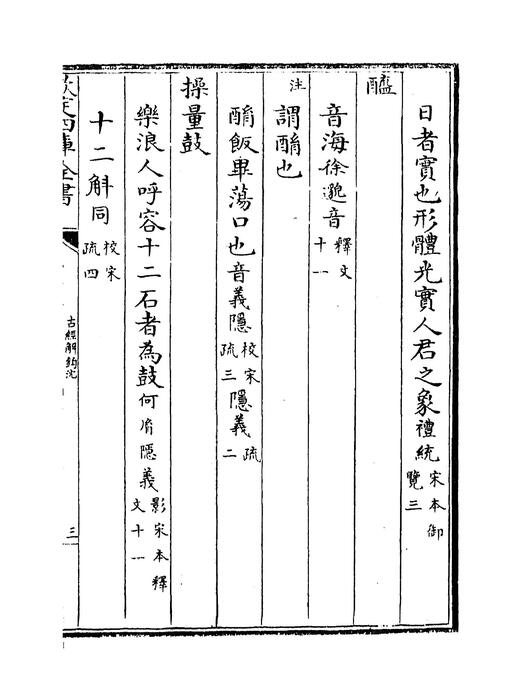 日者實也形體光實人君之象禮統宋本御覽三
醢
音海徐邈音釋文十一
注
謂酳也
酳飯畢蕩口也音義隱校宋疏三隱義疏二
操量鼓
樂浪人呼容十二石者為鼓何胤隱義影宋本釋文十一
十二斛同校宋疏四
欽定四庫全書
古經解鉤沈
三